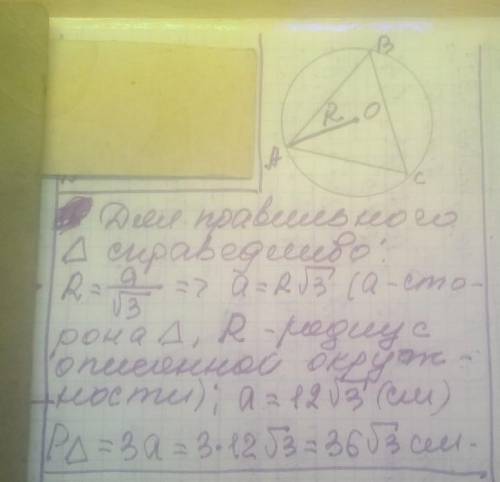 B
R
O
A
C
Для правильного
△ справедливо:
R = a/√3 => a = R√3 (a - сто-
рона △, R - радиус
описенной окруж-
ности); a = 12√3 (см)
P△ = 3a = 3·12√3 = 36√3 см.